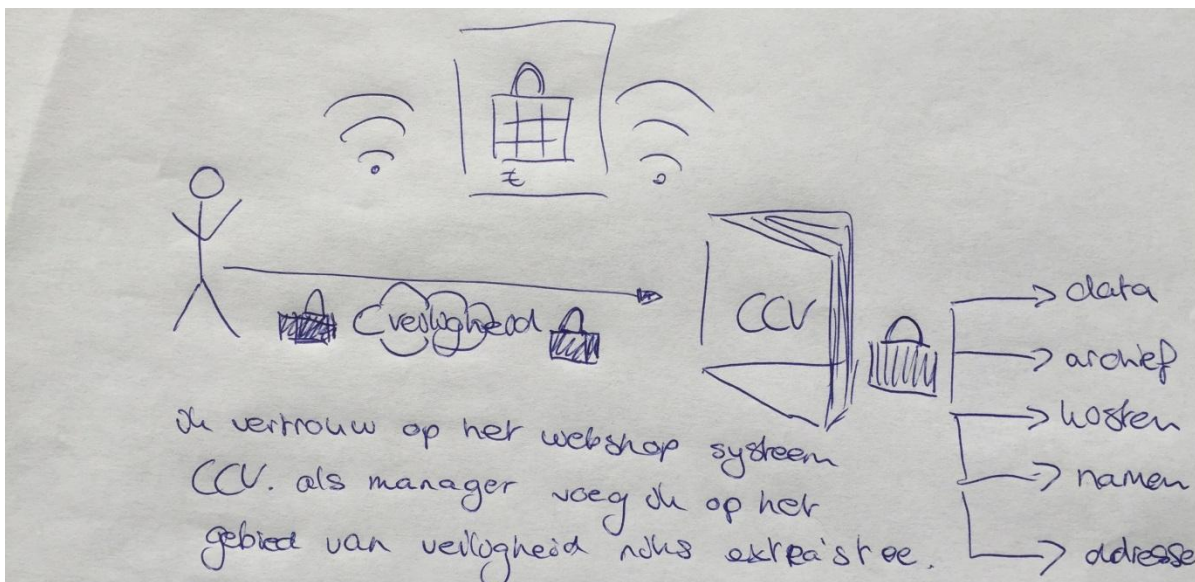 €
veiligheid
CCV
data
archief
kosten
namen
adresse
Ik vertrouw op het webshop systeem
CCV. als manager voeg ik op het
gebied van veiligheid niks extra's toe.